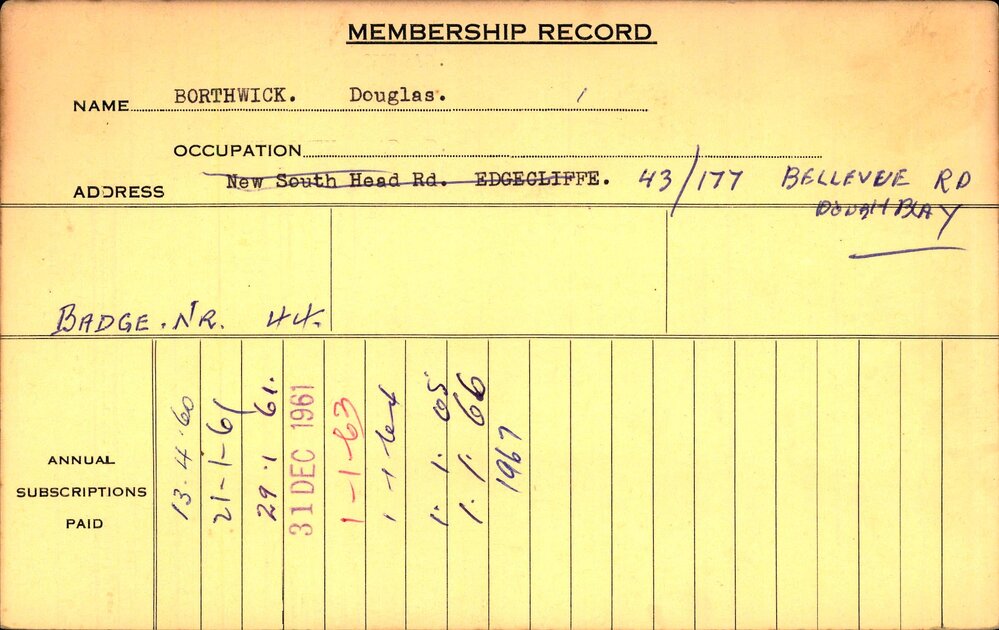 MEMBERSHIP RECORD
NAME BORTHWICK. Douglas.
OCCUPATION
ADDRESS New South Head Rd. EDGECLIFFE. 43/177 BELLEVUE RD
DOUBLE BAY
BADGE. NR. 44.
ANNUAL SUBSCRIPTIONS PAID
13.4.60
21-1-61
29.1 61.
31 DEC 1961
1-1-63
1-1-64
1. 1. 65
1. 1. 66
1967